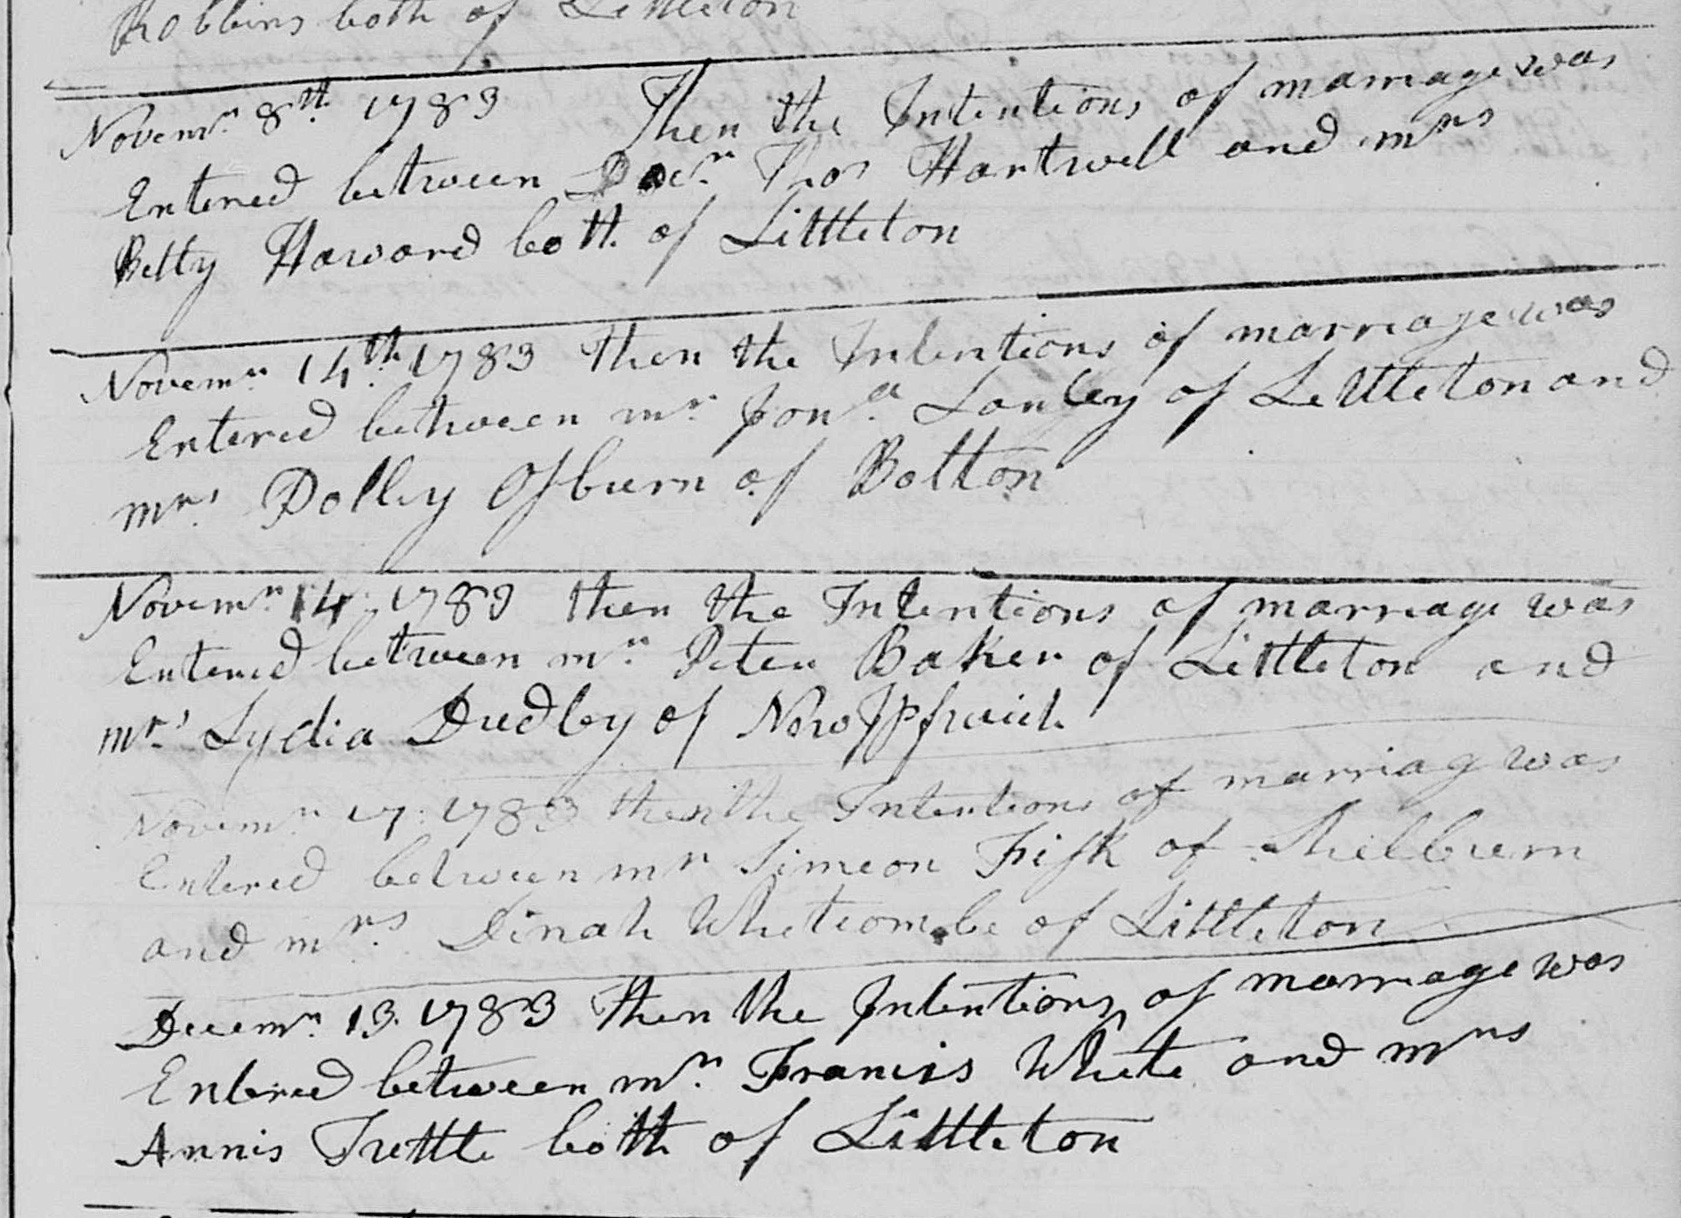 Robbins both of Littleton
Novemr. 8th. 1783 Then the Intentions of marriage was
Entered between Deacn. Thos Hartwell and mrs
Betty Haward both of Littleton
Novemr. 14th. 1783 then the Intentions of marriage was
Entered between mr. Jona. Lawley of Littleton and
mrs. Dolley Osburn of Bolton
Novemr. 14. 1783 then the Intentions of marriage was
Entered between mr. Peter Baker of Littleton and
mrs. Lydia Dudley of New Ipswich
Novemr. 17. 1783 then the Intentions of marriag was
Entered between mr Simeon Fisk of Shelburn
and mrs. Dinah Whetcombe of Littleton
Decemr. 13. 1783 Then the Intentions of marriage was
Entered between mr. Francis White and mrs
Annis Tuttle both of Littleton